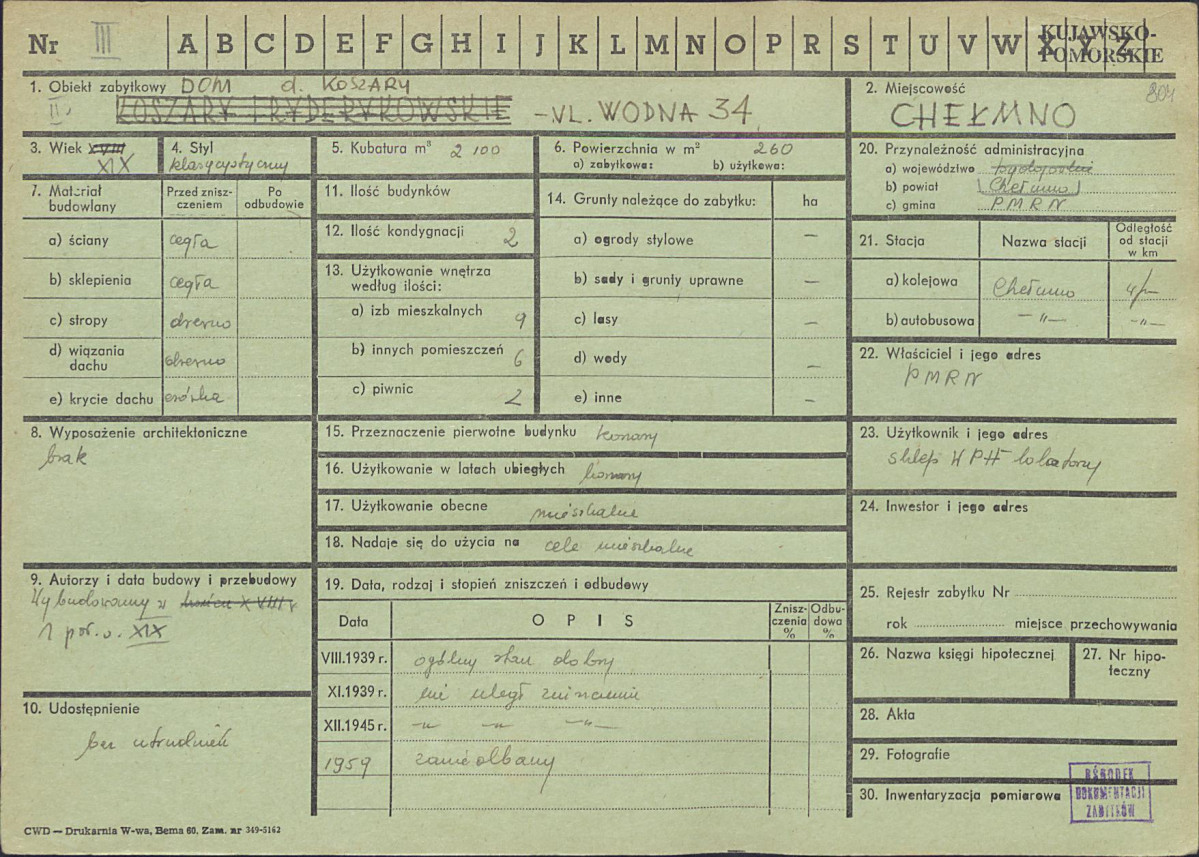 Nr III A B C D E F G H I J K L M N O P R S T U V W X Y Z
KUJAWSKO-
POMORSKIE
1. Obiekt zabytkowy DOM d. KOSZARY
II. KOSZARY FRYDERYKOWSKIE - UL. WODNA 34
2. Miejscowość 804
CHEŁMNO
3. Wiek XVIII
XIX
4. Styl
klasycystyczny
5. Kubatura m³ 2 100
6. Powierzchnia w m² 260
a) zabytkowa: b) użytkowa:
20. Przynależność administracyjna
a) województwo bydgoskie
b) powiat (Chełmno)
c) gmina PMRN
7. Materiał
budowlany
Przed znisz-
czeniem
Po
odbudowie
a) ściany cegła
b) sklepienia cegła
c) stropy drewno
d) wiązania
dachu drewno
e) krycie dachu
11. Ilość budynków
12. Ilość kondygnacji 2
13. Użytkowanie wnętrza
według ilości:
a) izb mieszkalnych 9
b) innych pomieszczeń 6
c) piwnic 2
14. Grunty należące do zabytku: ha
a) ogrody stylowe —
b) sady i grunty uprawne —
c) lasy —
d) wody —
e) inne —
21. Stacja Nazwa stacji
Odległość
od stacji
w km
a) kolejowa Chełmno
b) autobusowa —"— —"—
22. Właściciel i jego adres
PMRN
8. Wyposażenie architektoniczne
brak
15. Przeznaczenie pierwotne budynku koszary
16. Użytkowanie w latach ubiegłych koszary
17. Użytkowanie obecne mieszkalne
18. Nadaje się do użycia na cele mieszkalne
23. Użytkownik i jego adres
sklep WPH lokatorzy
24. Inwestor i jego adres
9. Autorzy i data budowy i przebudowy
Wybudowany w końcu XVIII w
1 poł. w. XIX
10. Udostępnienie
bez utrudnień
19. Data, rodzaj i stopień zniszczeń i odbudowy
Data OPIS
Znisz-
czenia
%
Odbu-
dowa
%
VIII.1939 r. ogólny stan dobry
XI.1939 r. nie uległ zniszczeniu
XII.1945 r. —"— —"— —"—
1959 zaniedbany
25. Rejestr zabytku Nr
rok miejsce przechowywania
26. Nazwa księgi hipotecznej
27. Nr hipo-
teczny
28. Akta
29. Fotografie
30. Inwentaryzacja pomiarowa
OŚRODEK
DOKUMENTACJI
ZABYTKÓW
CWD — Drukarnia W-wa, Bema 60. Zam. nr 349-5162